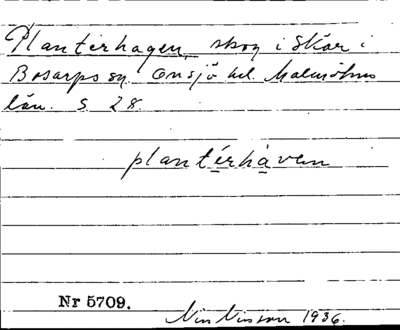 Planterhagen, skog i Skar i
Bosarps sn. Onsjö hd. Malmöhus
län. S 28.
plantérhaven
Nr 5709.
Nilsson 1936.